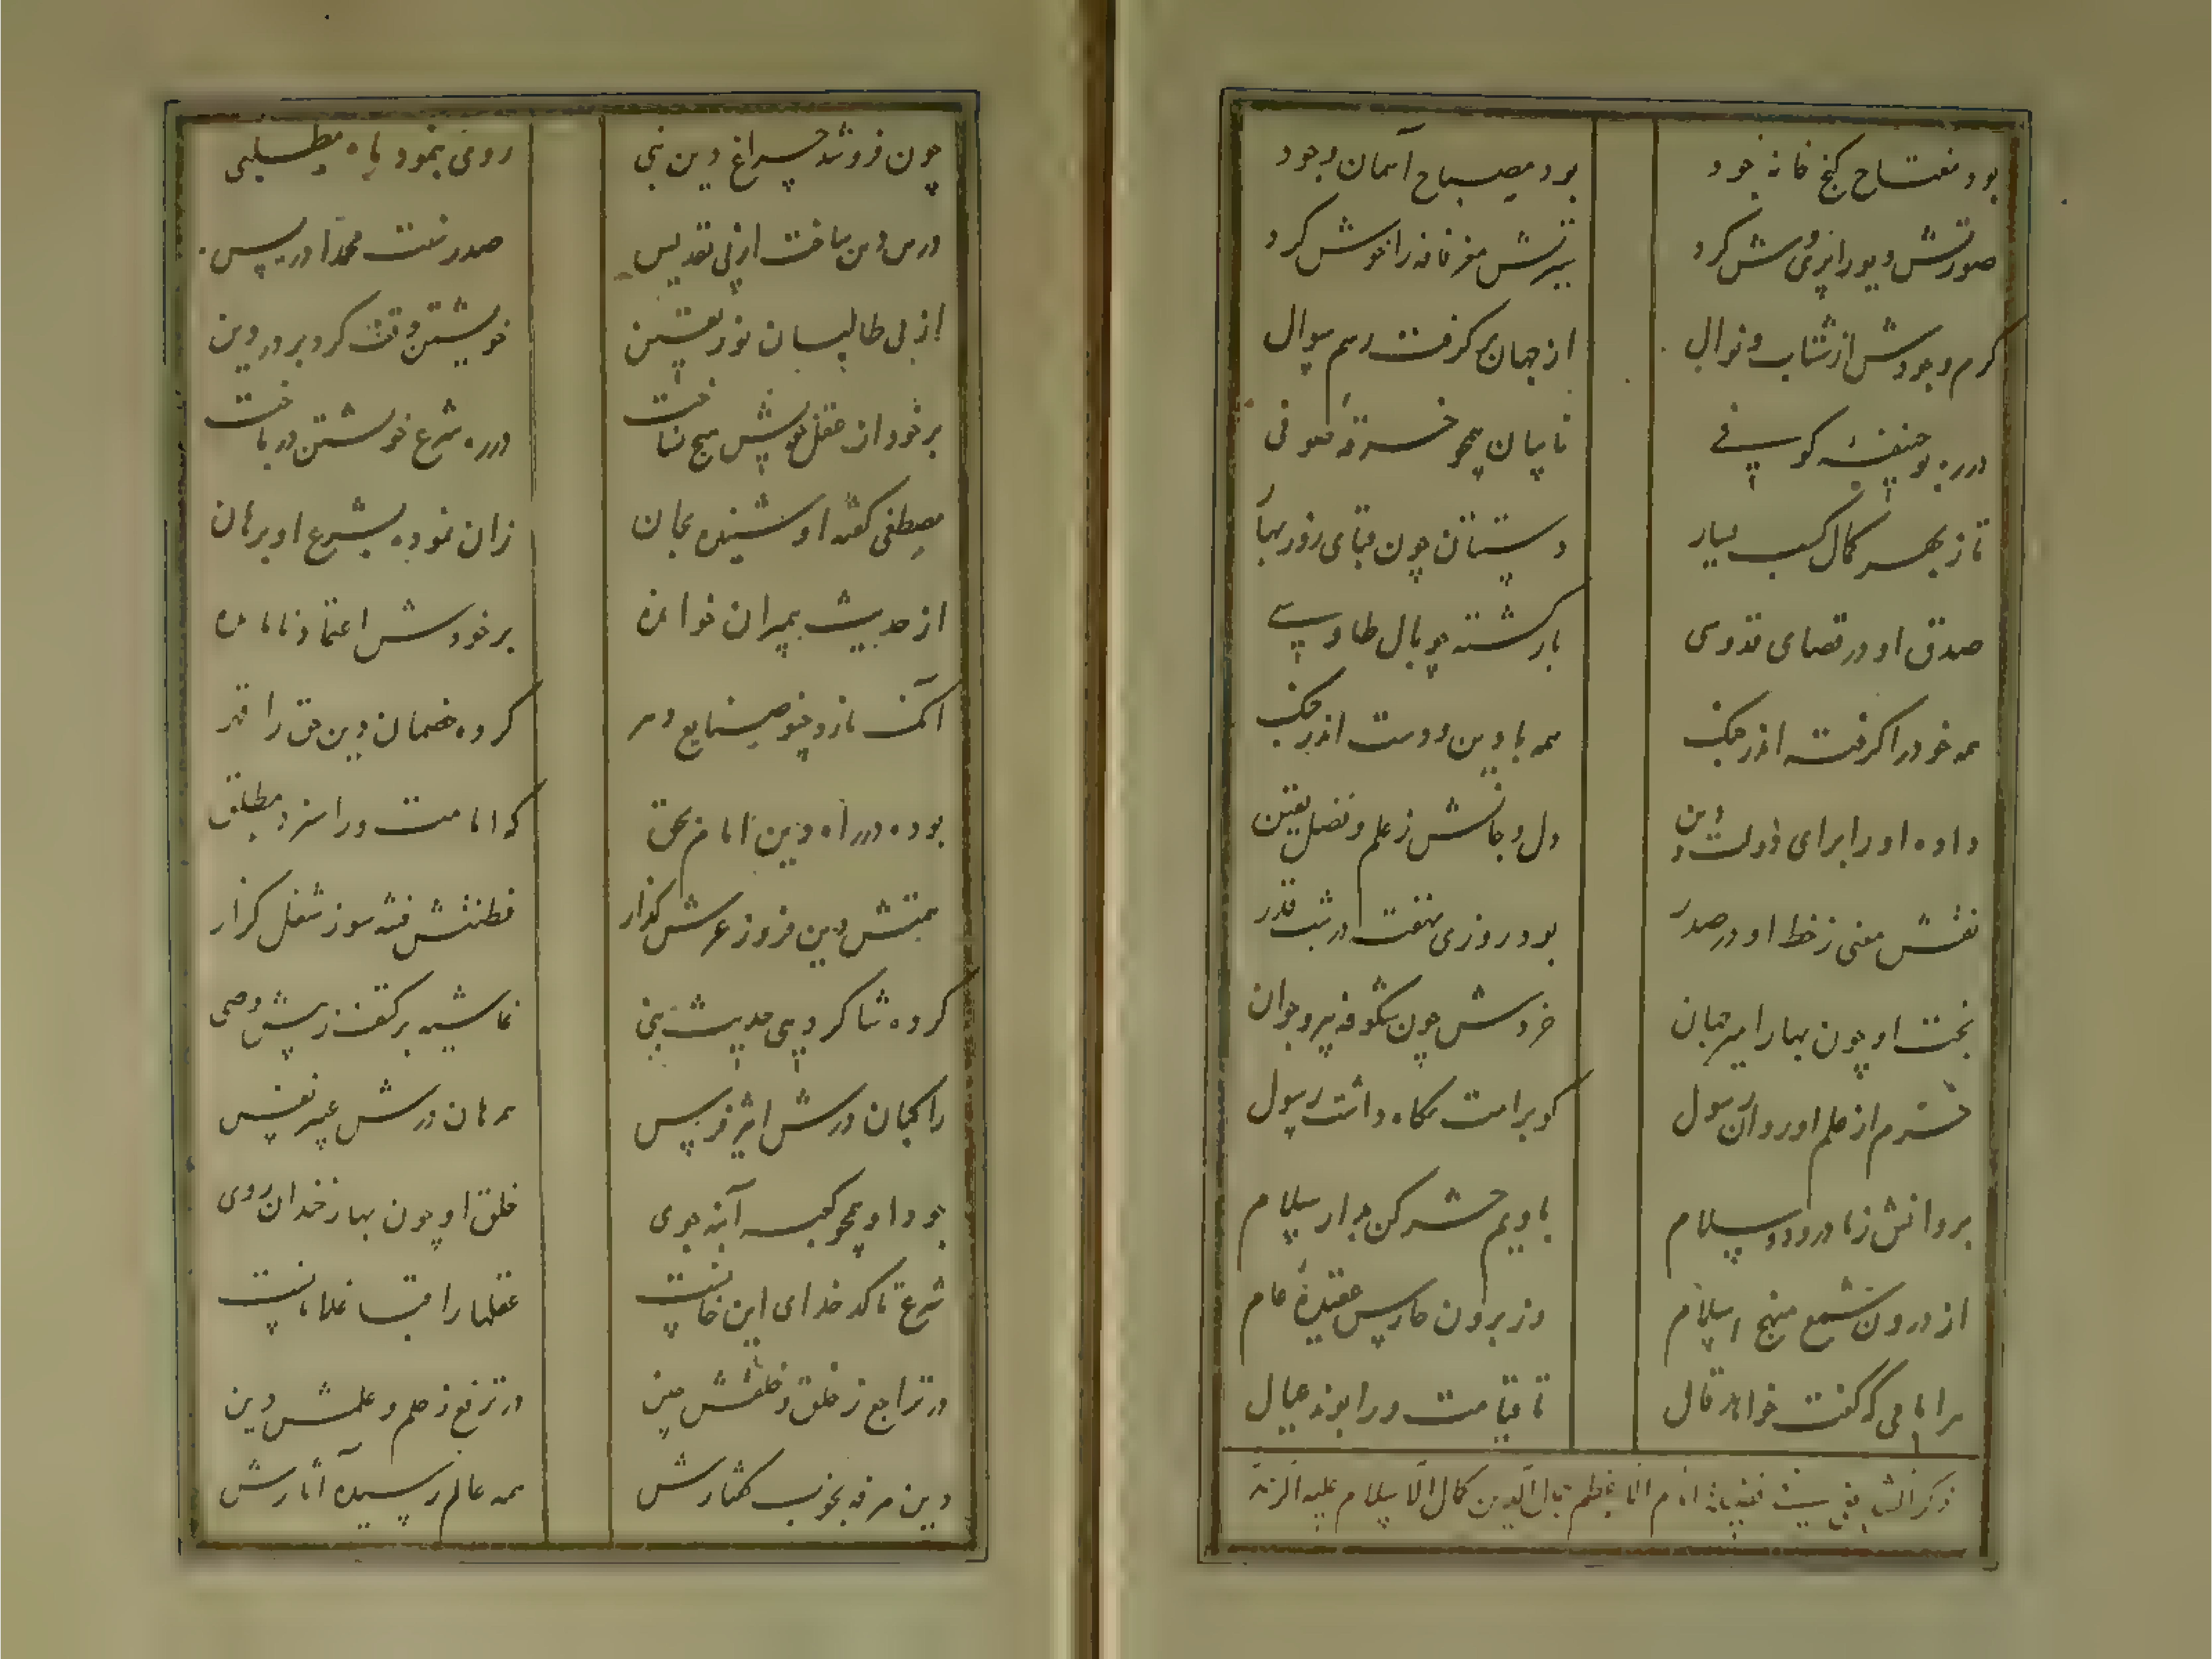 بود مفتاح گنج خانه جود
بود مصباح آسمان وجود
صورتش دیو را پری وش کرد
سیرتش مغز خانه را خوش کرد
کرم و جودش از شتاب و نوال
از جهان برگرفت رسم سوال
در ره بوحنیفه کوفی
تا زیان همچو خرقه صوفی
تا ز بهر کمال کسب بسیار
دستیانان چون قبای روز بهار
صدق او در قضای قدوسی
بارگشته چو بال طاوسی
همه خود را گرفته اندر جنگ
همه با دین دوست اندر جنگ
داده او را برای دولت و دین
دل و جانش ز علم و فضل یقین
نقش معنی ز خط او در صدر
بود روزی نهفته در شب قدر
بخت او چون بهار امیر جهان
خردش چون شکوفه پیر و جوان
خرم از علم او روان رسول
کو بر امت نگاه داشت رسول
بر روانش ز ما درود و سلام
با ویم حشر کن بدار سلام
از درون شمع منهج اسلام
وز برون حارس عقیده عام
هر امامی که گفت خواهد قال
تا قیامت ورا بوند عیال
ذکر الشافعی سنت فقیهانه امام الاعظم جمال الدین کمال الاسلام علیه الرحمة
چون فروشد چراغ دین نبی
روی بنمود ماه مطلبی
درس دین ساخت از پی تقدیس
صدر سنت محمد ادریس
از پی طالبان نور یقین
خویشتن وقف کرد بر در دین
برخود از عقل خویش هیچ نساخت
در ره شرع خویشتن درباخت
مصطفی گفته او شنیده بجان
زان نموده بشرع او برهان
از حدیث پیمبران خوانده
بر خودش اعتماد نامانده
آنک نازد چنو صنایع دهر
کرده خصمان دین حق را قهر
بوده در راه دین امام بحق
که امامت ورا سزد مطلق
همتش دین فروز عرش گذار
فطنتش فتنه سوز شغل گزار
کرده شاگردیی حدیث نبی
غاشیه بر کتف ز پیش وصی
راکبان درش اثیر فرس
رهبان درش عبیر نفس
جود او همچو کیسه آینه جوی
خلق او چون بهار خندان روی
شرع تا کدخدای این خانست
عقلها را قبا غلامانست
در تراجع ز خلق و خلقش چین
در ترفع ز حلم و علمش دین
دین مرفه بخوب گفتارش
همه عالم رسیده آثارش